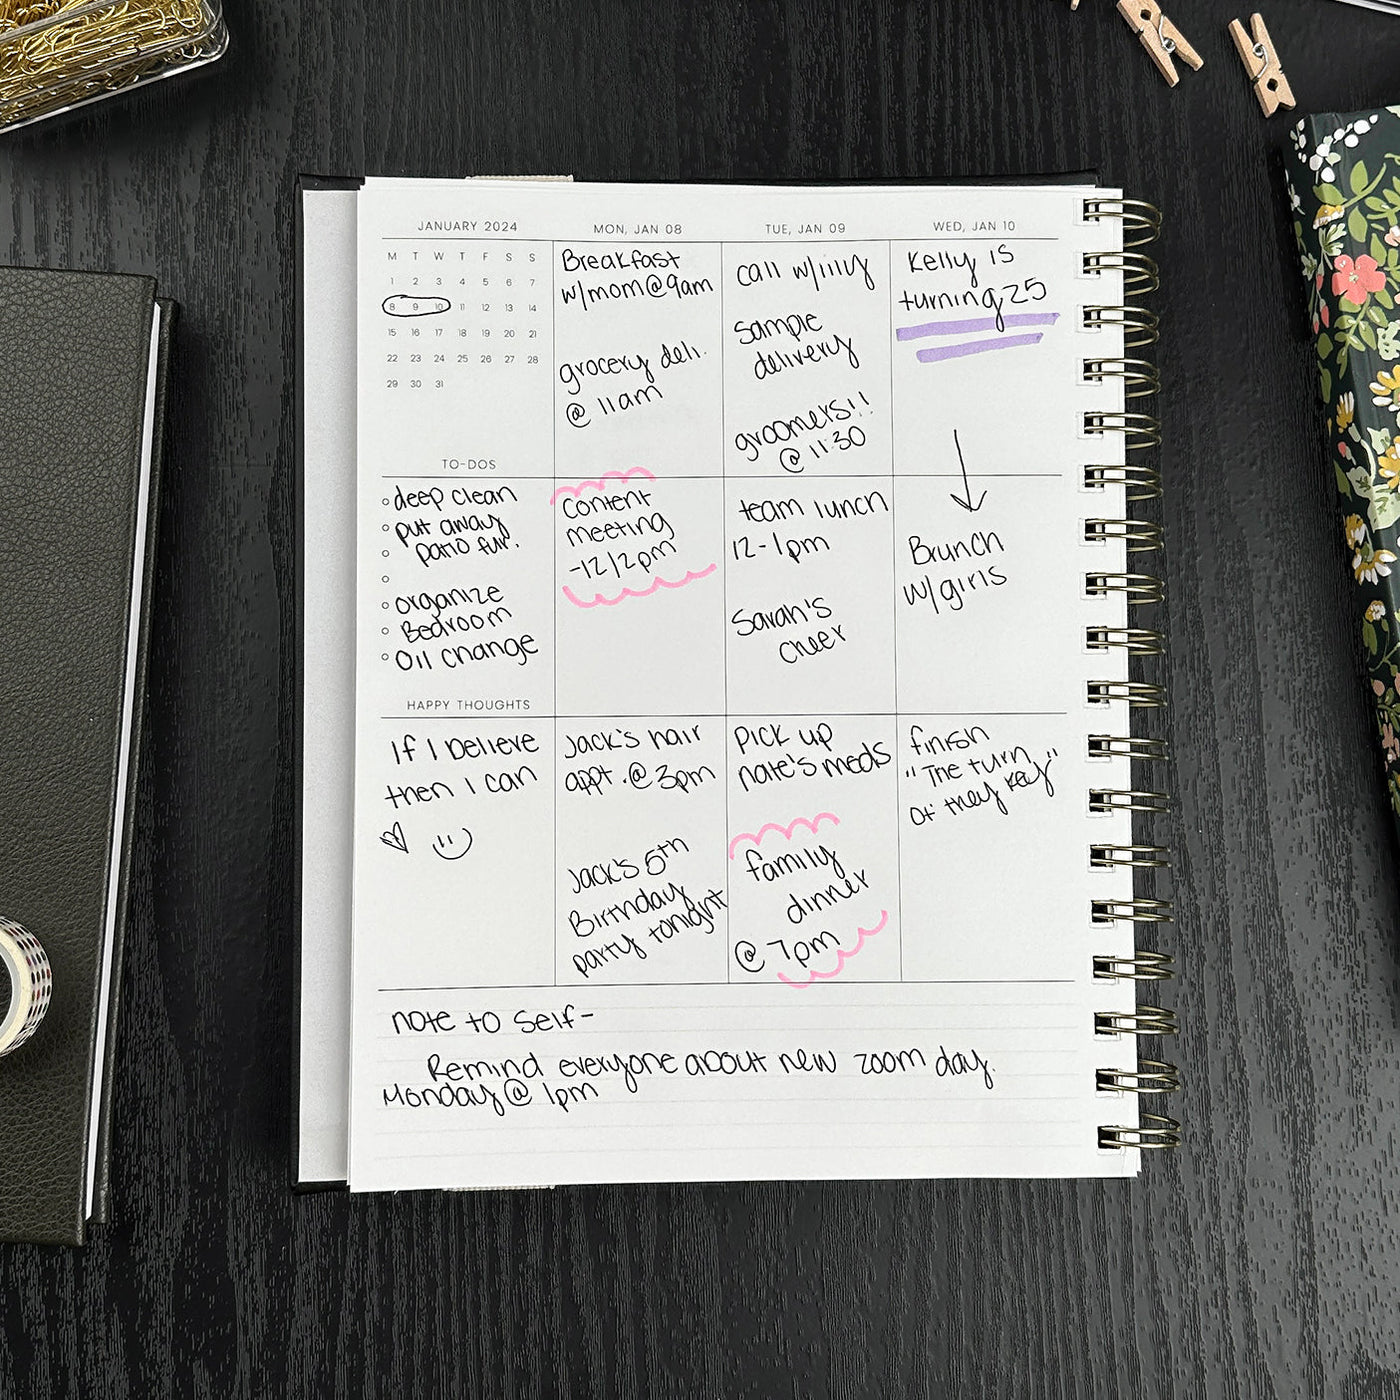 JANUARY 2024
M T W T F S S
1 2 3 4 5 6 7
8 9 10 11 12 13 14
15 16 17 18 19 20 21
22 23 24 25 26 27 28
29 30 31
TO-DOS
deep clean
put away
patio fur.
organize
Bedroom
Oil change
HAPPY THOUGHTS
If I believe
then I can
MON, JAN 08
Breakfast
w/mom@9am
grocery deli.
@ 11am
Content
meeting
-12/2pm
Jack's hair
appt. @ 3pm
Jack's 5th
Birthday
party tonight
TUE, JAN 09
call w/lily
Sample
delivery
groomers!!
@ 11:30
team lunch
12-1pm
Sarah's
cheer
Pick up
nate's meds
family
dinner
@ 7pm
WED, JAN 10
Kelly is
turning 25
Brunch
w/girls
finish
"The turn
of they Key"
note to self-
Remind everyone about new zoom day.
Monday @ 1pm